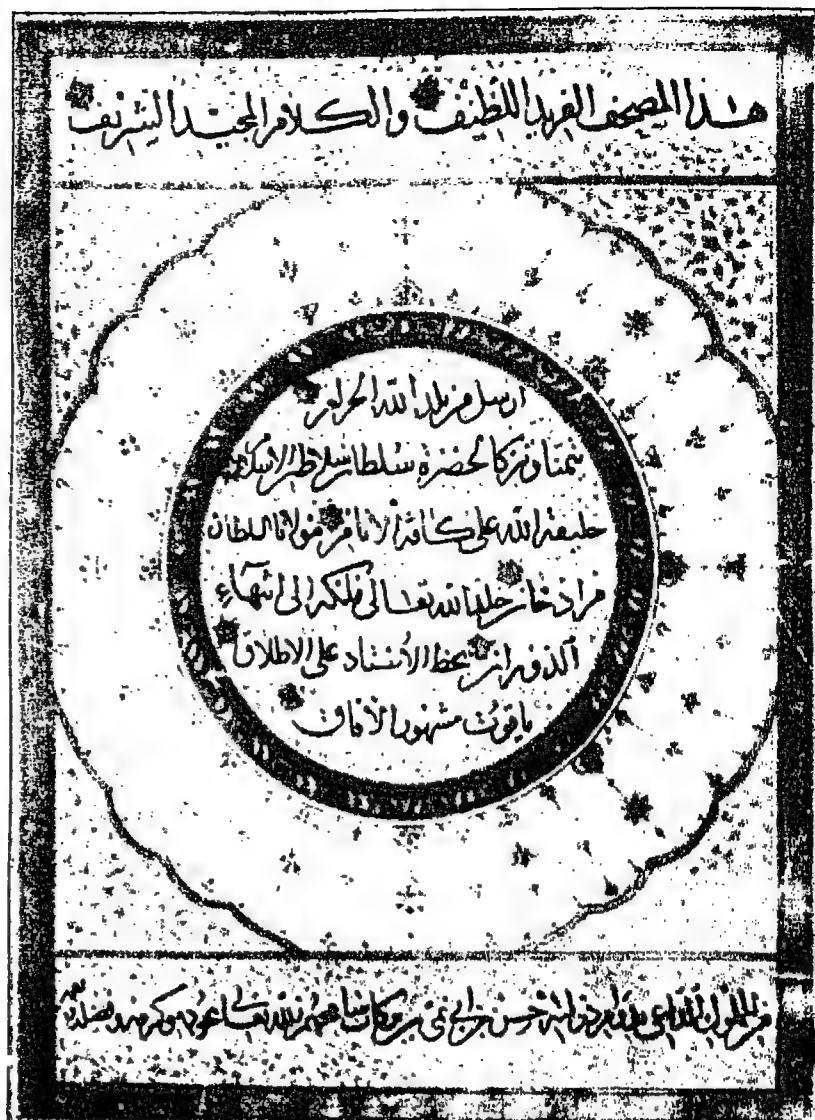 هذا المصحف الفريد اللطيف والكلام المجيد الشريف
ارسل من بلد الله الحرام
تيمنا وتبركا لحضرة سلطان سلاطين الاسلام
خليفة الله على كافة الانام مولانا السلطان
مراد خان خلد الله تعالى ملكه الى انتهاء
الدوران بخط الاستاد على الاطلاق
ياقوت مشهور الآفاق
الداعى دولته حسن بن ابى نمى بن بركات الله تعالى بجوده وكرمه وفضله